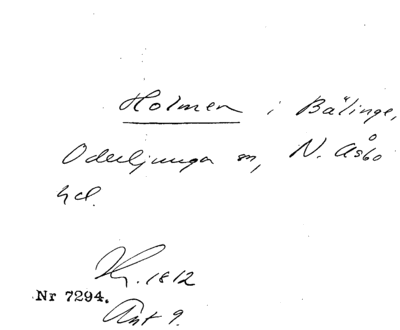 Holmen i Bälinge,
Oderljunga sn, N. Åsbo
hd.
Kr. 1812
Nr 7294.
Ant 9.